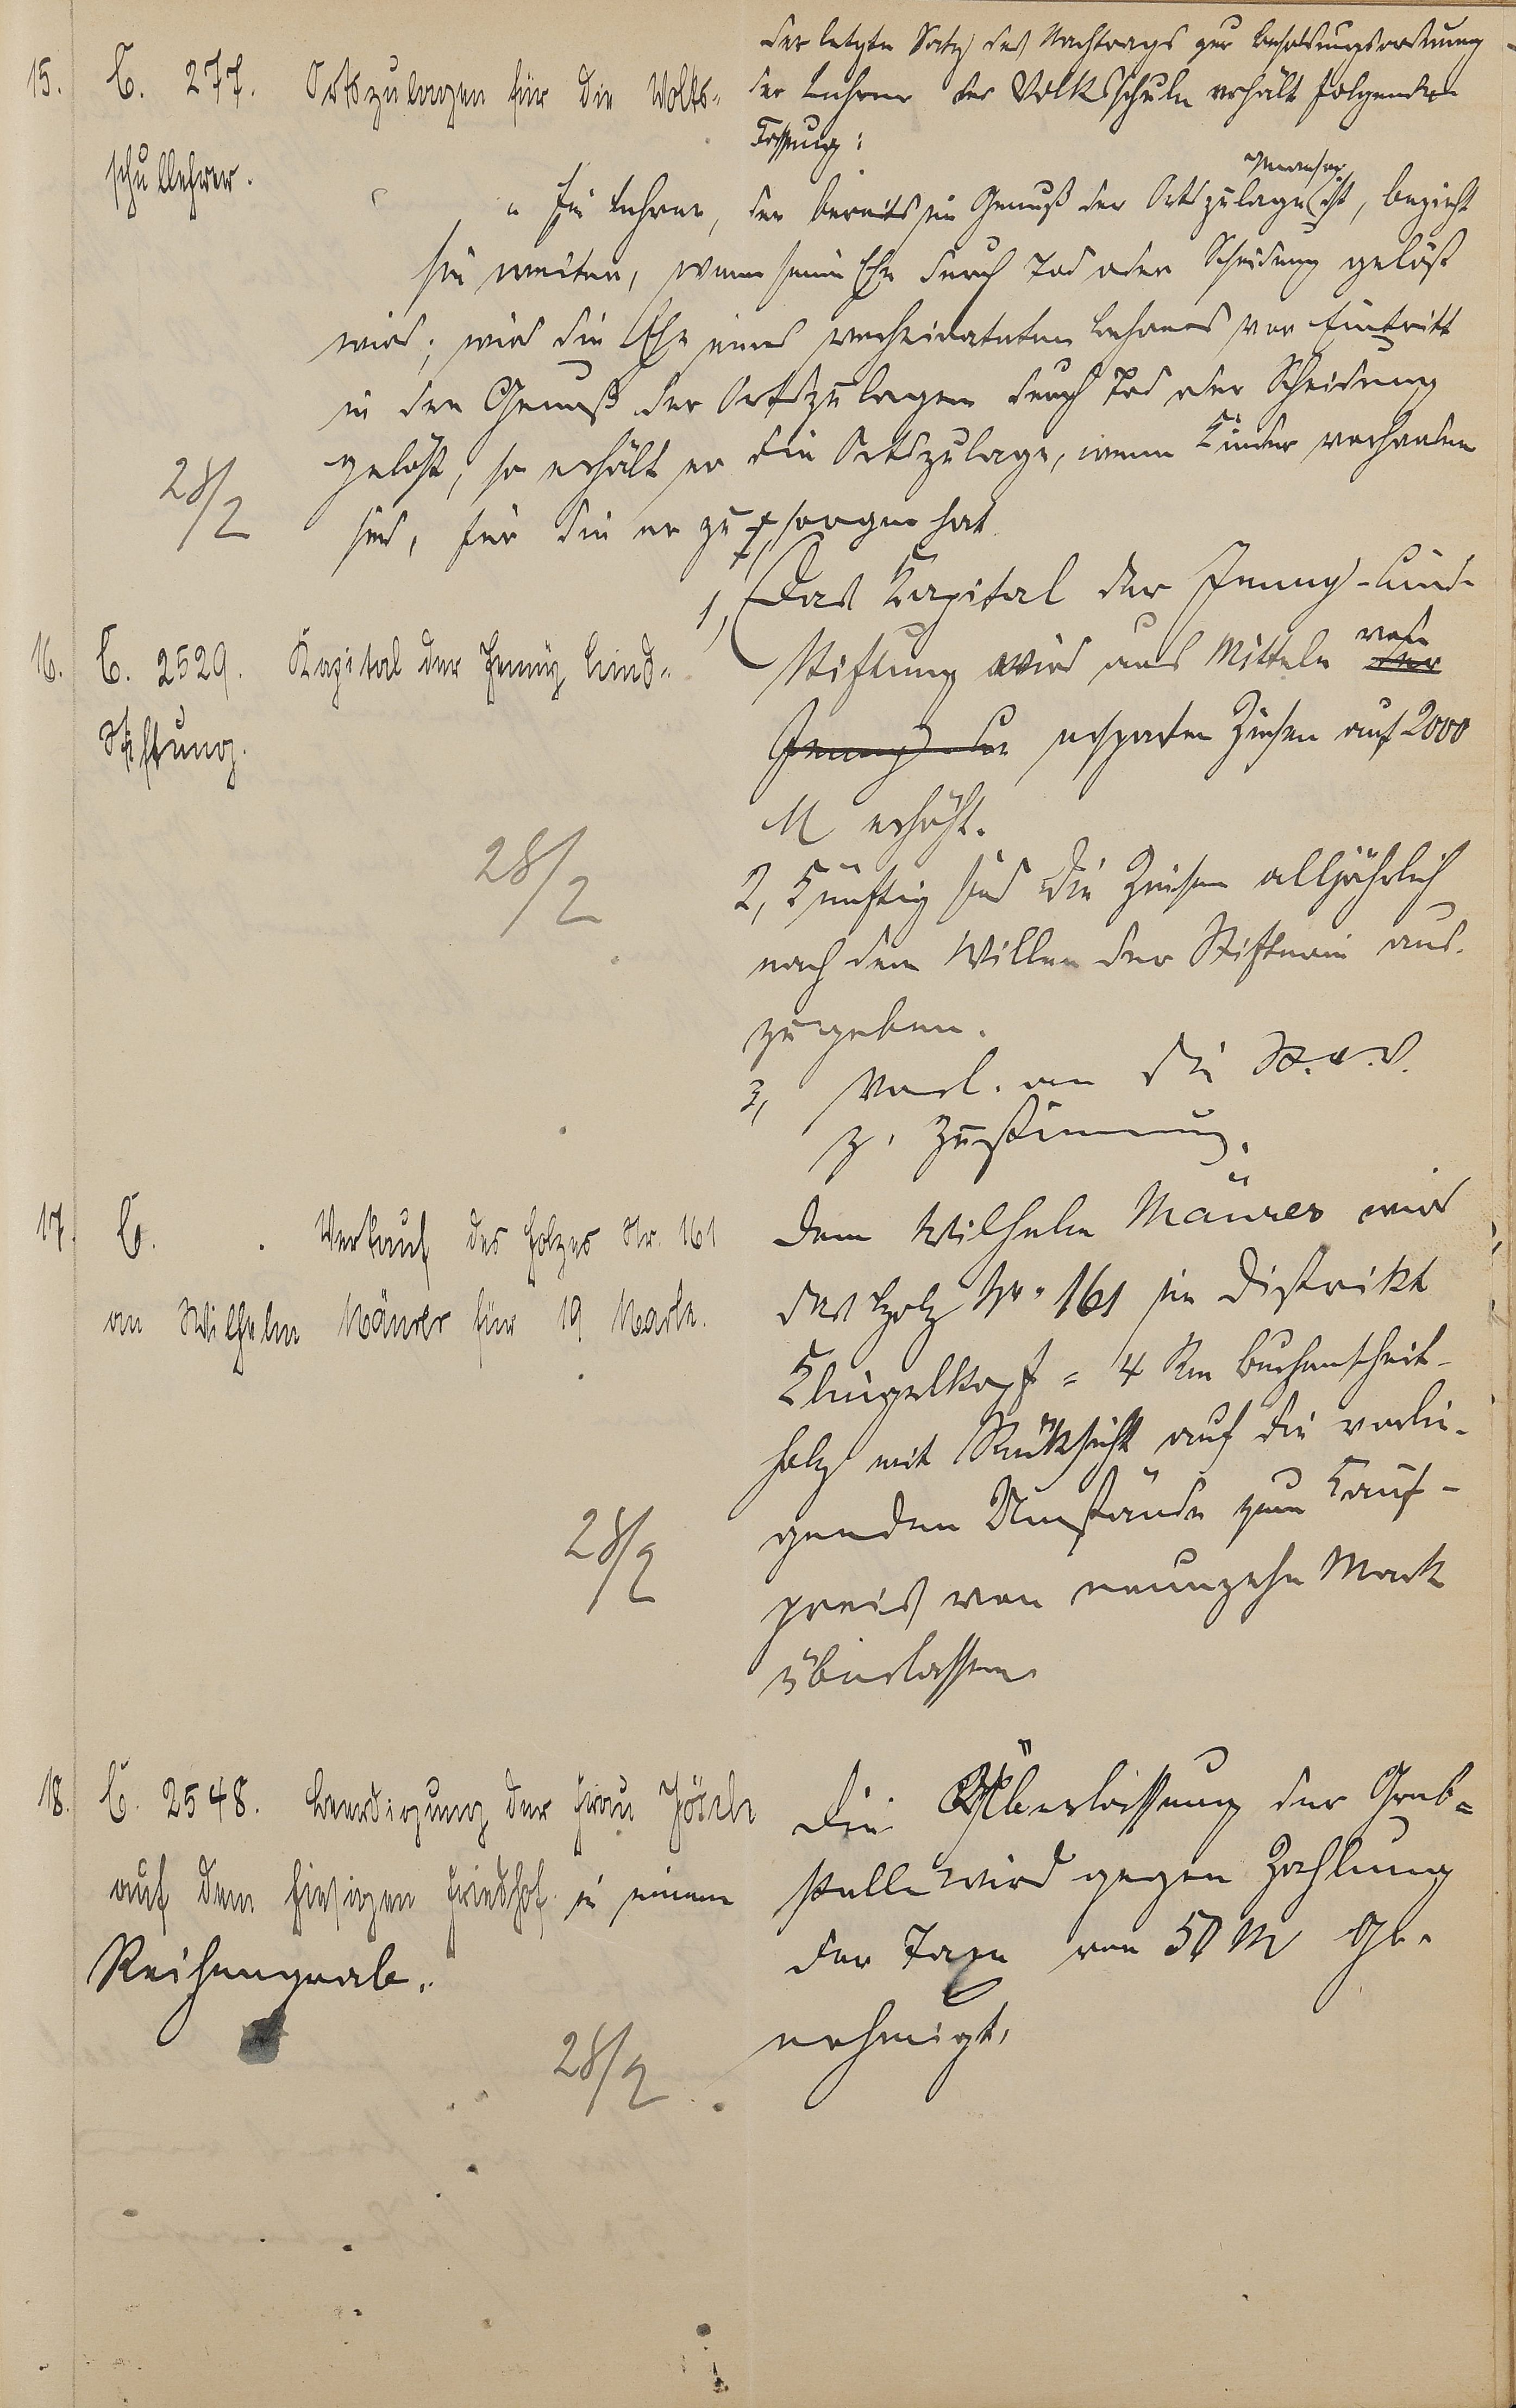 15. C. 277. Ortszulagen für die Volks-
schullehrer.
28/2
der letzte Satz des Nachtrags zur Besoldungsordnung
der Lehrer der Volksschule erhält folgende
Fassung:
„Ein Lehrer, der bereits im Genuß der Ortszulage ist, bezieht
sie weiter, wenn seine Ehe durch Tod oder Scheidung gelöst
wird; wird die Ehe eines verheirateten Lehrers vor Eintritt
in den Genuß der Ortszulagen durch Tod oder Scheidung
gelöst, so erhält er die Ortszulage, wenn Kinder vorhanden
sind, für die er zu sorgen hat.
16. C. 2529. Kapital der Jenny Lind-
Stiftung.
28/2
1, Das Kapital der Jenny-Lind-
Stiftung wird aus Mitteln der
Jenny der ersparten Zinsen auf 2000
M erhöht.
2, Künftig sind die Zinsen alljährlich
nach dem Willen der Stifterin aus-
zugeben.
3, Vorl. an die St.v.V.
z. Zustimmung.
17. C. . Verkauf des Holzes Nr. 161
an Wilhelm Mäurer für 19 Mark.
28/2
Dem Wilhelm Mäurer wird
das Holz Nr. 161 im Distrikt
Klingelkopf = 4 Rm Buchenscheit-
holz mit Rücksicht auf die vorlie-
genden Umstände zum Kauf-
preis von neunzehn Mark
überlassen
18. C. 2548. Beerdigung der Frau
auf dem hiesigen Friedhof in einem
Reihengrabe.
28/2
Die Überlassung der Grab-
stelle wird gegen Zahlung
der Taxe von 50 M ge-
nehmigt.